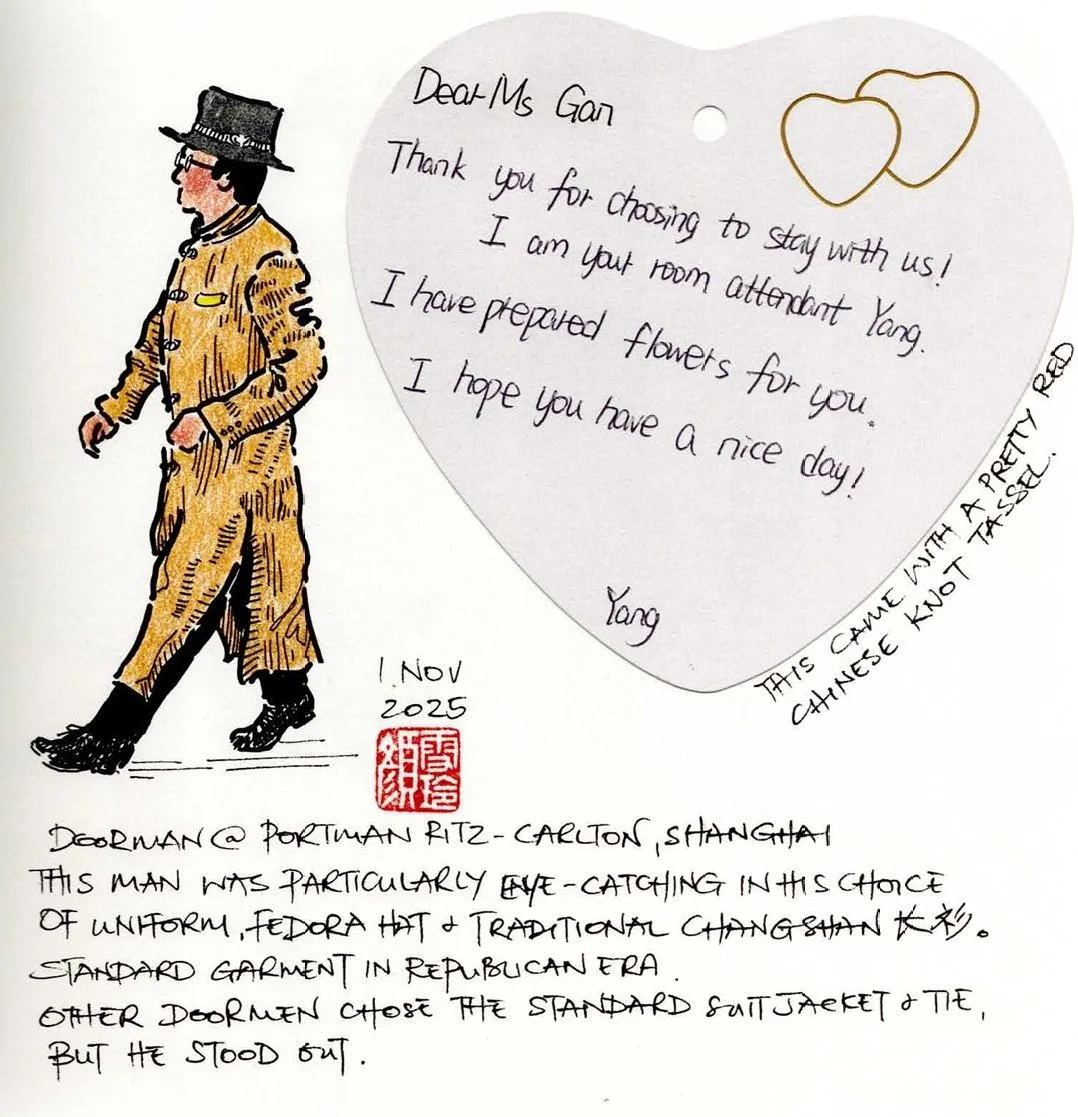 Dear Ms Gan
Thank you for choosing to stay with us!
I am your room attendant Yang.
I have prepared flowers for you.
I hope you have a nice day!
Yang
THIS CAME WITH A PRETTY RED
CHINESE KNOT TASSEL.
1 NOV
2025
顔雪玲
DOORMAN @ PORTMAN RITZ-CARLTON, SHANGHAI
THIS MAN WAS PARTICULARLY EYE-CATCHING IN HIS CHOICE
OF UNIFORM, FEDORA HAT & TRADITIONAL CHANGSHAN 长衫.
STANDARD GARMENT IN REPUBLICAN ERA.
OTHER DOORMEN CHOSE THE STANDARD SUIT JACKET & TIE,
BUT HE STOOD OUT.